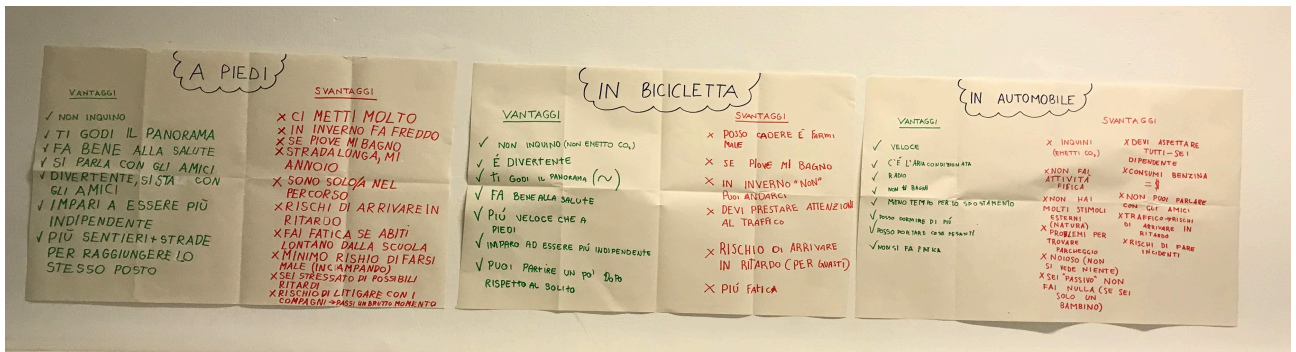 A PIEDI
VANTAGGI
✓ NON INQUINO
✓ TI GODI IL PANORAMA
✓ FA BENE ALLA SALUTE
✓ SI PARLA CON GLI AMICI
✓ DIVERTENTE, SI STA CON
GLI AMICI
✓ IMPARI A ESSERE PIÙ
INDIPENDENTE
✓ PIÙ SENTIERI + STRADE
PER RAGGIUNGERE LO
STESSO POSTO
SVANTAGGI
× CI METTI MOLTO
× IN INVERNO FA FREDDO
× SE PIOVE MI BAGNO
× STRADA LONGA, MI
ANNOIO
× SONO SOLO/A NEL
PERCORSO
× RISCHI DI ARRIVARE IN
RITARDO
× FAI FATICA SE ABITI
LONTANO DALLA SCUOLA
× MINIMO RISHIO DI FARSI
MALE (INCIAMPANDO)
× SEI STRESSATO DI POSSIBILI
RITARDI
× RISCHIO DI LITIGARE CON I
COMPAGNI → PASSI UN BRUTTO MOMENTO
IN BICICLETTA
VANTAGGI
✓ NON INQUINO (NON EMETTO CO₂)
✓ É DIVERTENTE
✓ TI GODI IL PANORAMA (~)
✓ FA BENE ALLA SALUTE
✓ PIÚ VELOCE CHE A
PIEDI
✓ IMPARO AD ESSERE PIÚ INDIPENDENTE
✓ PUOI PARTIRE UN PO' DOPO
RISPETTO AL SOLITO
SVANTAGGI
× POSSO CADERE E FARMI
MALE
× SE PIOVE MI BAGNO
× IN INVERNO "NON"
PUOI ANDARCI
× DEVI PRESTARE ATTENZIONE
AL TRAFFICO
× RISCHIO DI ARRIVARE
IN RITARDO (PER GUASTI)
× PIÚ FATICA
IN AUTOMOBILE
VANTAGGI
✓ VELOCE
✓ C'É L'ARIA CONDIZIONATA
✓ RADIO
✓ NON TI BAGNI
✓ MENO TEMPO PER LO SPOSTAMENTO
✓ POSSO DORMIRE DI PIÚ
✓ POSSO PORTARE COSE PESANTI
✓ NON SI FA FATICA
SVANTAGGI
× INQUINI
(EMETTI CO₂)
× NON FAI
ATTIVITÀ
FISICA
× NON HAI
MOLTI STIMOLI
ESTERNI
(NATURA)
× PROBLEMI PER
TROVARE
PARCHEGGIO
× NOIOSO (NON
SI VEDE NIENTE)
× SEI "PASSIVO" NON
FAI NULLA (SE SEI
SOLO UN
BAMBINO)
× DEVI ASPETTARE
TUTTI - SEI
DIPENDENTE
× CONSUMI BENZINA
= $
× NON PUOI PARLARE
CON GLI AMICI
× TRAFFICO → RISCHI
DI ARRIVARE IN
RITARDO
× RISCHI DI FARE
INCIDENTI